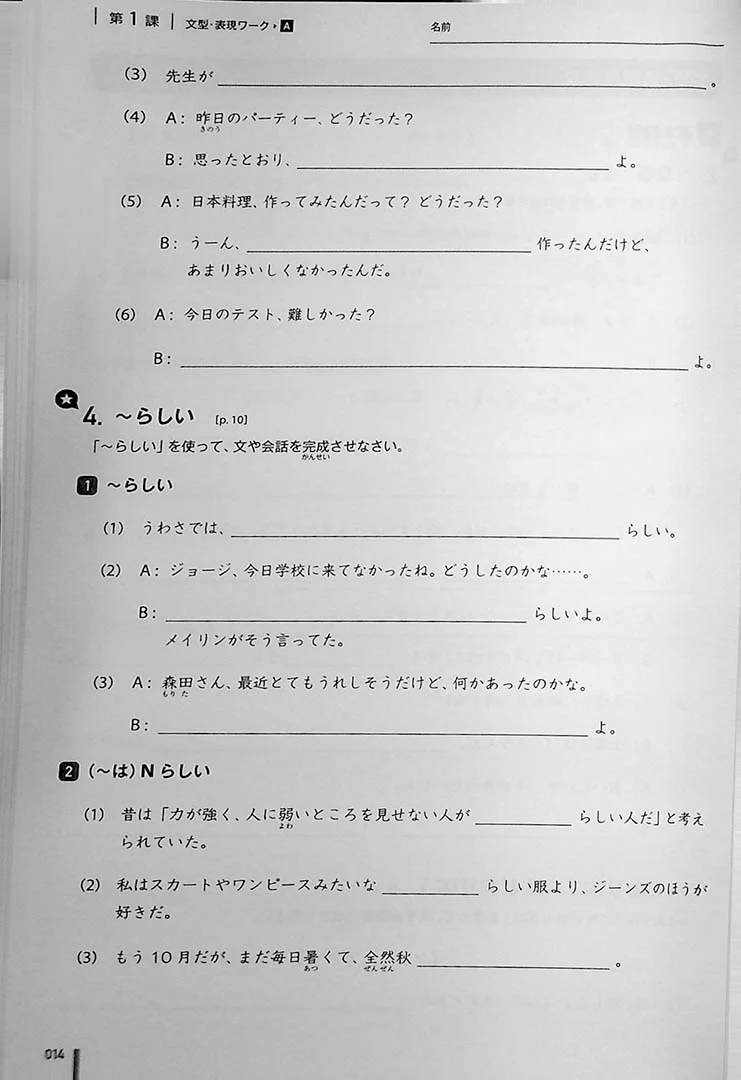 第1課 文型・表現ワーク▶A 名前
(3) 先生が 。
(4) A：昨日のパーティー、どうだった？
きのう
B：思ったとおり、 よ。
(5) A：日本料理、作ってみたんだって？ どうだった？
B：うーん、 作ったんだけど、
あまりおいしくなかったんだ。
(6) A：今日のテスト、難しかった？
B： よ。
★ 4. ～らしい [p.10]
「～らしい」を使って、文や会話を完成させなさい。
かんせい
1 ～らしい
(1) うわさでは、 らしい。
(2) A：ジョージ、今日学校に来てなかったね。どうしたのかな……。
B： らしいよ。
メイリンがそう言ってた。
(3) A：森田さん、最近とてもうれしそうだけど、何かあったのかな。
もりた
B： よ。
2 （～は）Nらしい
(1) 昔は「力が強く、人に弱いところを見せない人が らしい人だ」と考え
よわ
られていた。
(2) 私はスカートやワンピースみたいな らしい服より、ジーンズのほうが
好きだ。
(3) もう10月だが、まだ毎日暑くて、全然秋 。
あつ ぜんぜん
014